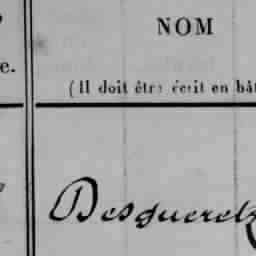 NOM
e.
(Il doit être écrit en bât
Desqueretz